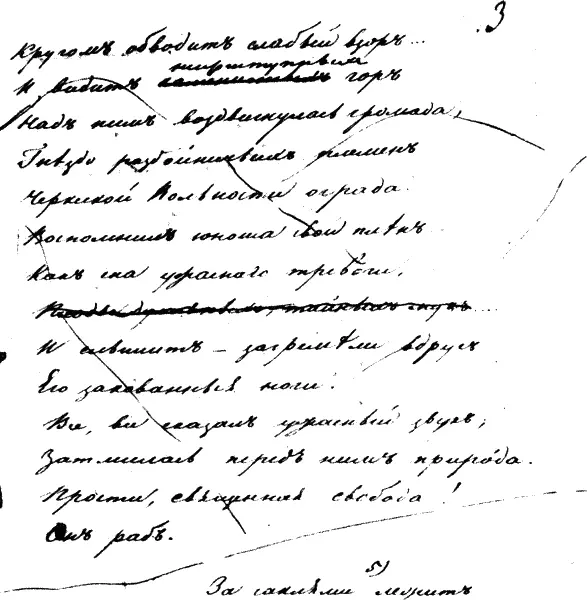 3
Кругомъ обводитъ слабый взоръ...
неприступныхъ
И видитъ горъ
Надъ нимъ воздвигнулась громада,
Гнѣздо разбойничьихъ племенъ
Черкеской Вольности ограда.
Воспомнилъ юноша свой плѣнъ
Какъ сна ужаснаго тревоги,
И слышитъ – загремѣли вдругъ
Его закованныя ноги.
Все, все сказалъ ужасный звукъ;
Затмилась передъ нимъ природа.
Прости, священная свобода!
Онъ рабъ.
За саклями 5) лежитъ